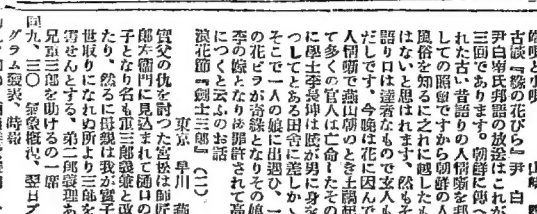 古談『綠の花びら』尹 白
尹白南氏邦語の放送はこれが
三回であります。朝鮮に傳
れた古い昔語りの人情噺を邦
しての照會ですから朝鮮の人
風俗を知るに之れに越したも
はないと思はれます、然も
語り口は達者なもので玄人も
だしです、今晩は花に因んで
人情噺で燕山朝のとき士禍
て多くの官人は亡命したその
に學士李長坤は賤が男に身を
つしてとある田舍に差しか
そこで一人の娘に出遇ひ、
の花ビラが奇緣となりその娘
李の嫁となり後罪許されて高
につくと云ふのお話
浪花節『劍士三郎』(二)
東京 早川 燕
實父の仇を討つた宮松は師匠
郎左衞門に見込まれて樋口の
子となり名も軍三郎義兼と改
たり、然るに母親は我が實子
世取りになれぬ所より三郎を
害せんとする、弟二郎義理あ
兄軍三郎を助けるの一席
同九、三〇 氣象概況、翌日プ
グラム發表、時報